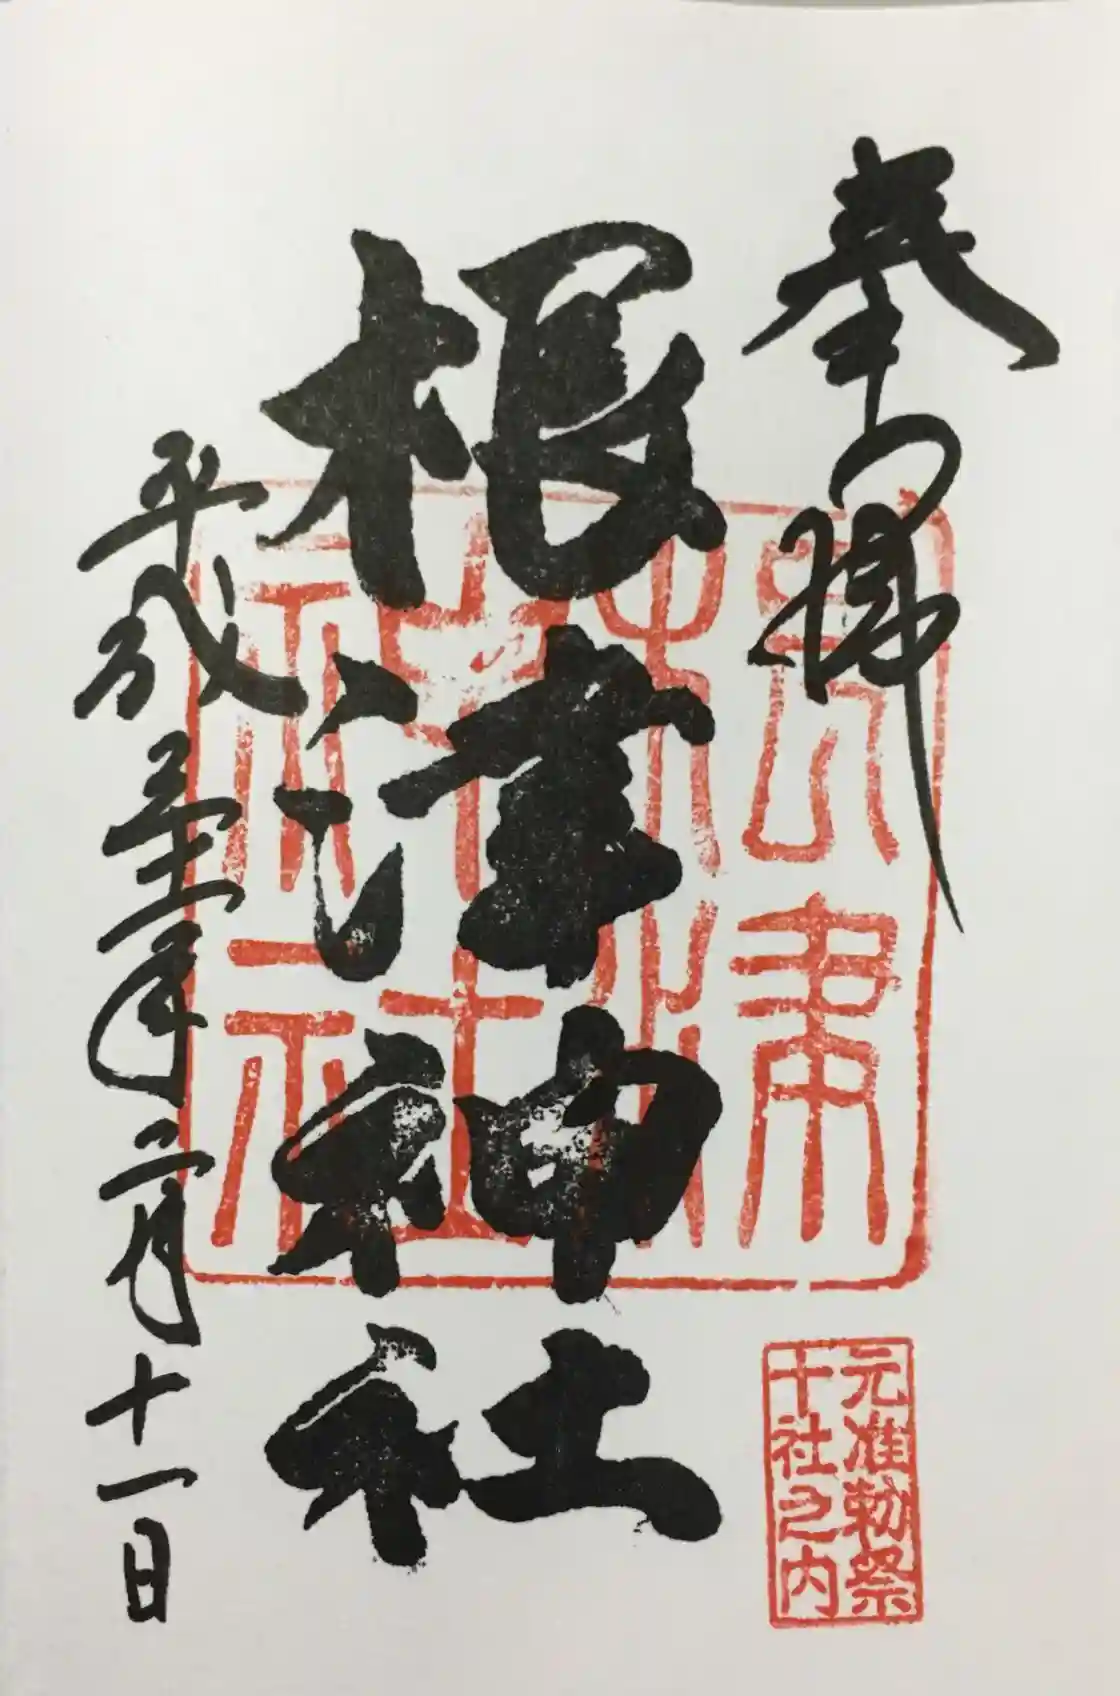 奉拝
根津神社
根津
神社
元准勅祭
十社之内
平成 年 月十一日